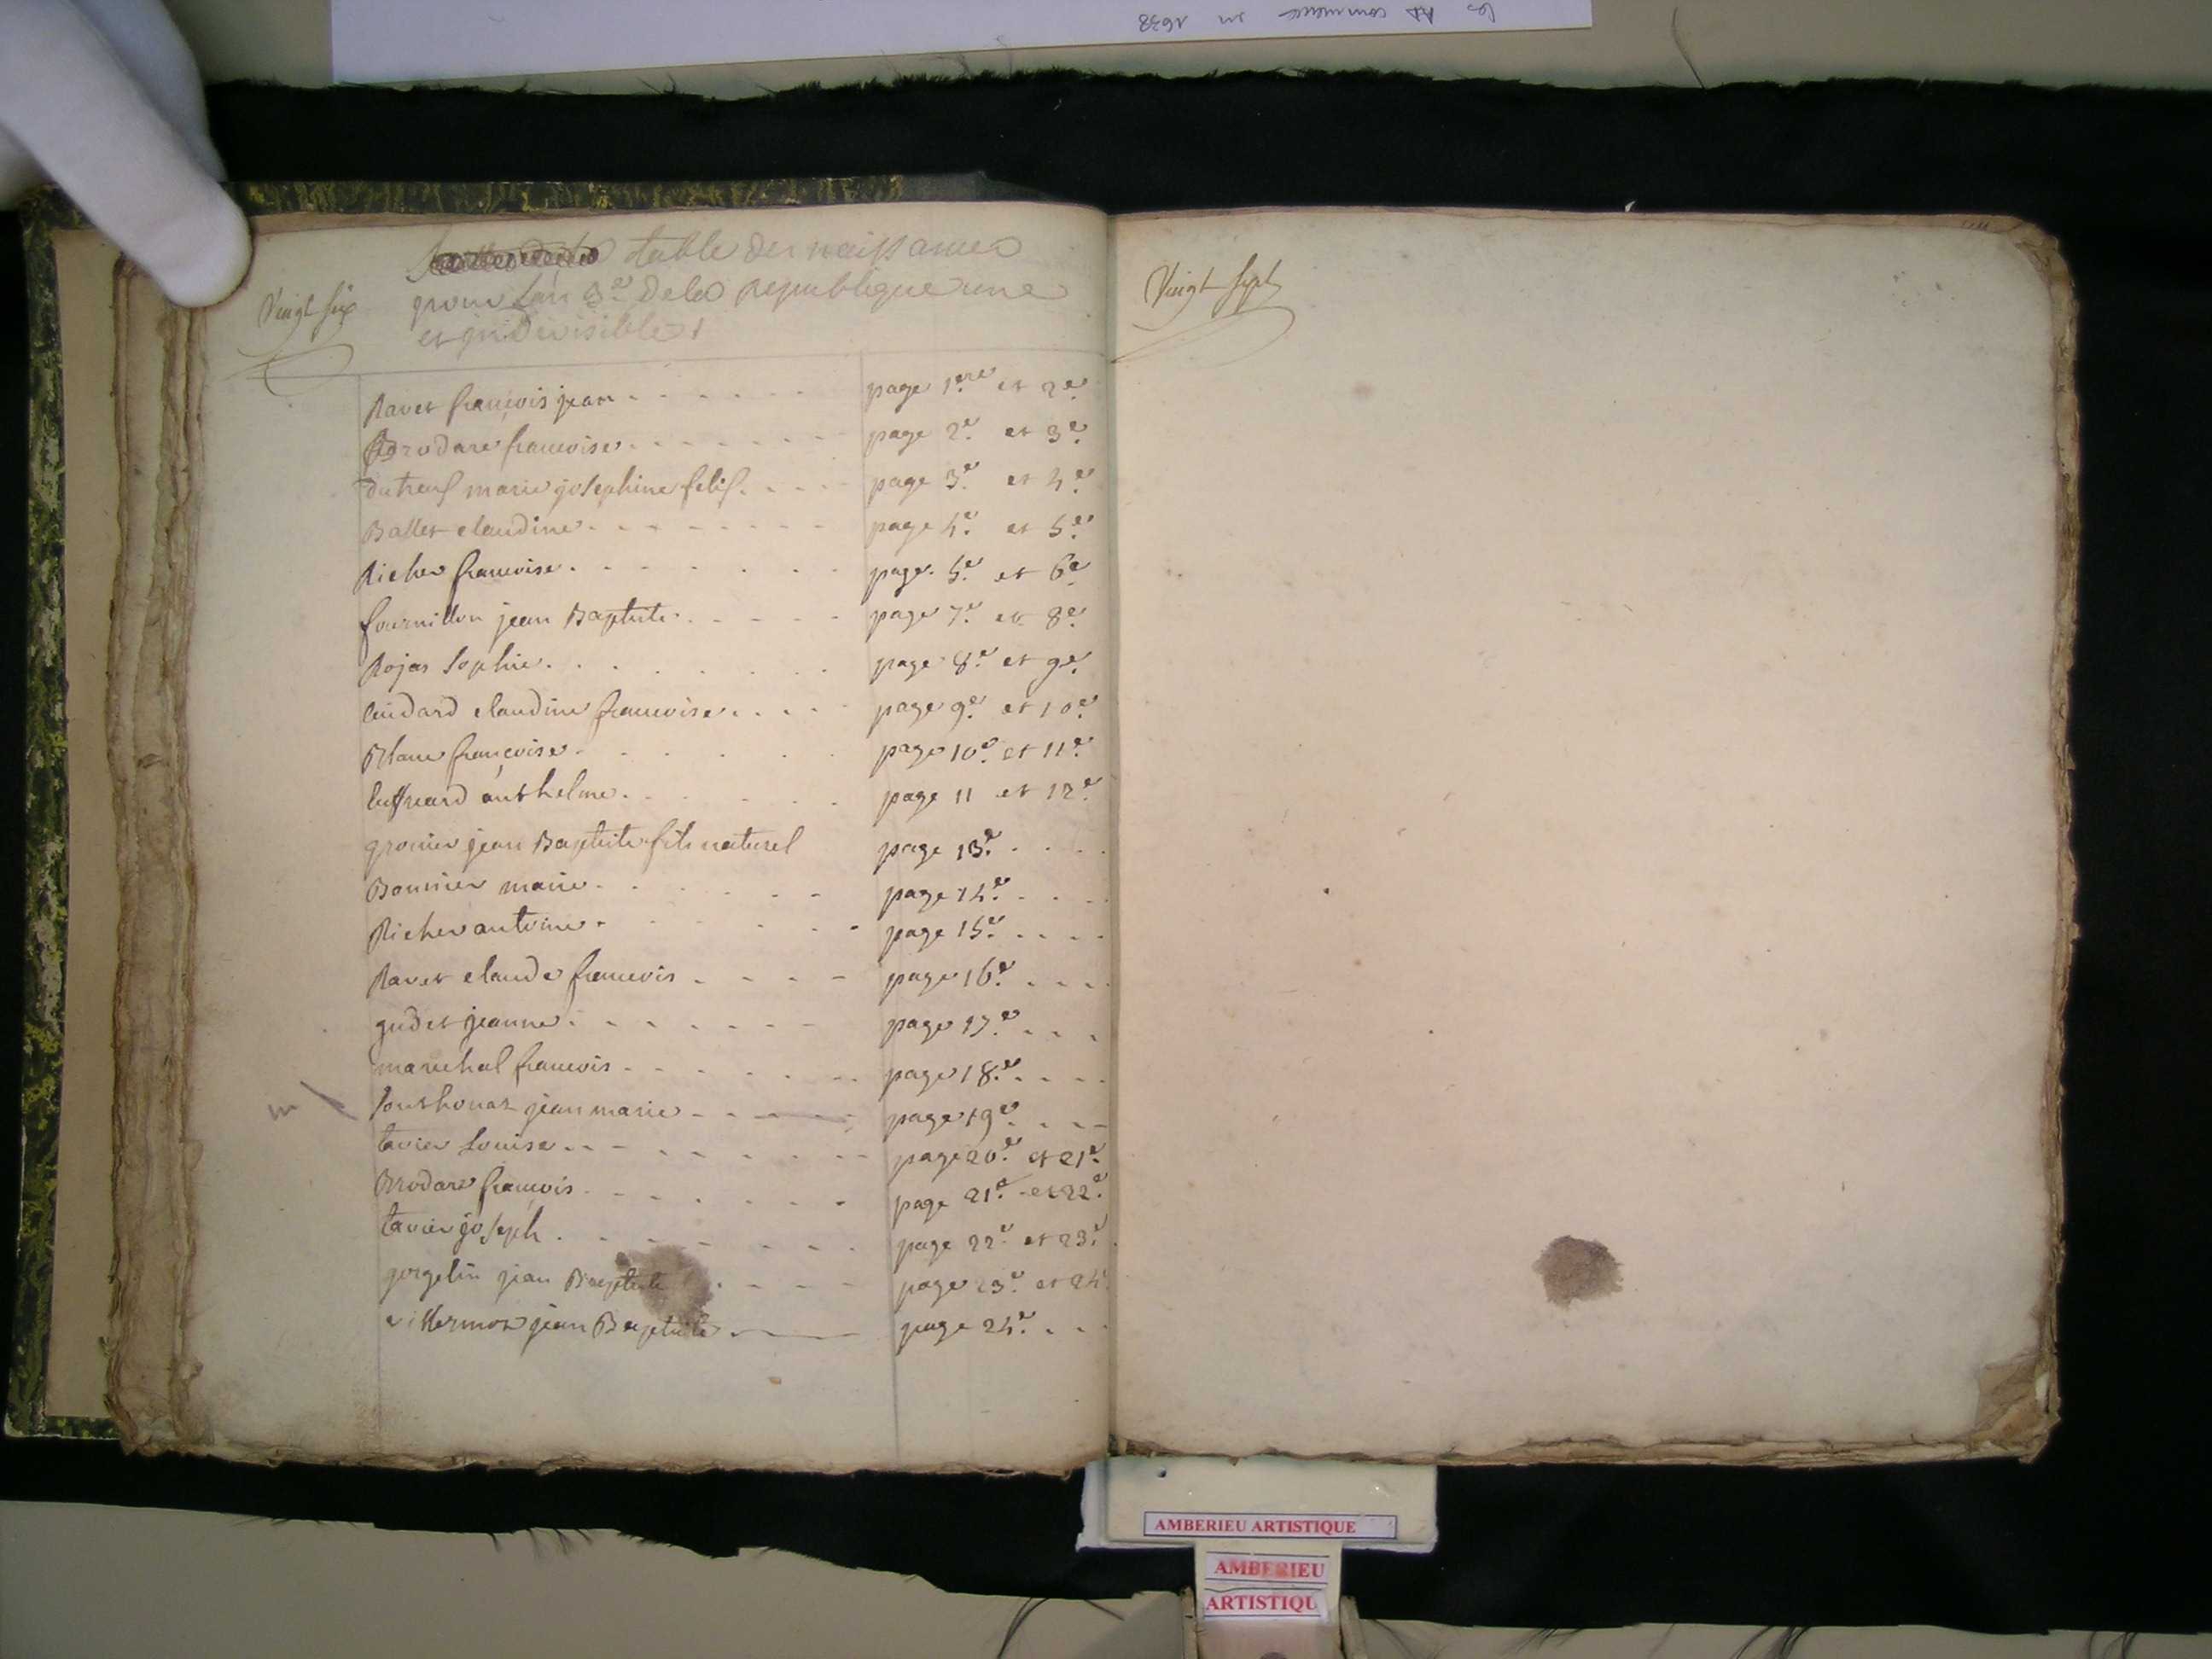 les commence en 1638
Vingt six
table des naissances
pour l'an 3.e de la republique une
et indivisible
Ravet françois jean page 1.ere et 2.e
Brodare francoise page 2.e et 3.e
marie josephine page 3.e et 4.e
Ballet claudine page 4.e et 5.e
Richer francoise page 5.e et 6.e
fournillon jean Baptiste page 7.e et 8.e
Rojas Sophie page 8.e et 9.e
claudine francoise page 9.e et 10.e
Blanc françoise page 10.e et 11.e
anthelme page 11 et 12.e
gronier jean Baptiste fils naturel page 13.e
Bonnier marie page 14.e
Richer antoine page 15.e
Ravet claude francois page 16.e
gudet jeanne page 17.e
marechal francois page 18.e
jean marie page 19.e
tavier Louise page 20.e et 21.e
Brodare françois page 21.e et 22.e
tavier joseph page 22.e et 23.e
gorgelin jean Baptiste page 23.e et 24
villermoz jean Baptiste page 24.e
Vingt Sept
AMBERIEU ARTISTIQUE
AMBERIEU
ARTISTIQU